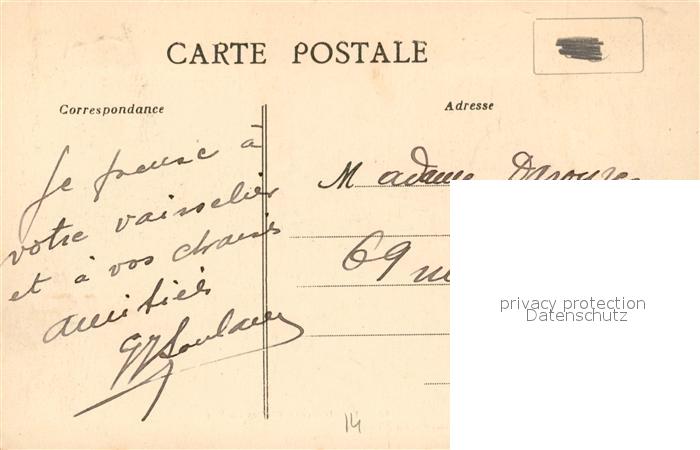 CARTE POSTALE
Correspondance
Adresse
Je pense à
votre vaisselier
et à vos chaises
amitiés
Madame
69 rue
privacy protection
Datenschutz
14